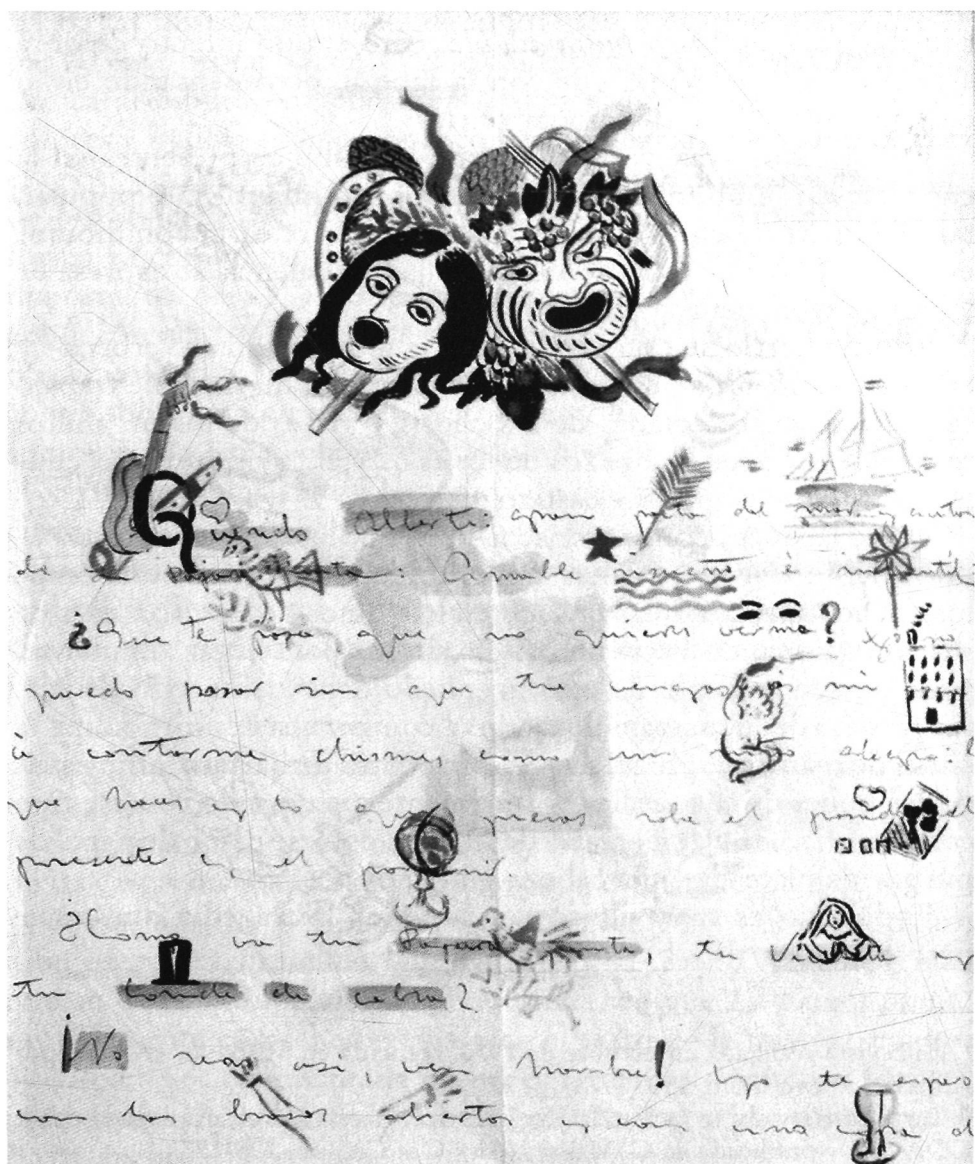 Querido Alberti: gran poeta del mar y autor
de la pájara pinta: Amable
¿Que te pasa que no quieres verme? Yo no
puedo pasar sin que tu vengas á mi
á contarme chismes como un alegre
que haces y lo que piensas sobre el pasado el
presente y el porvenir
¿Como va tu Pajara pinta, tu Visita y
tu conde de cabra?
¡No seas asi, ven hombre! Yo te espero
con los brazos abiertos y con una copa de